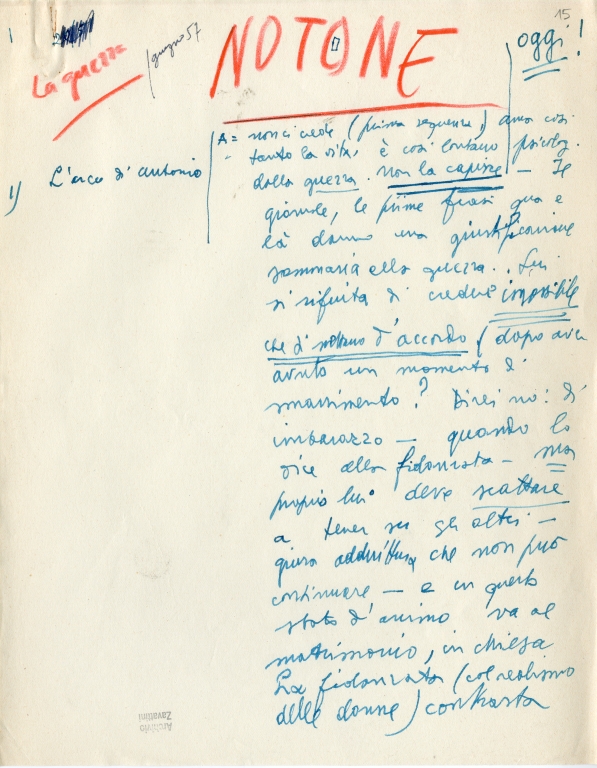 15
La guerra
giugno 57
NOTONE
oggi!
1) L'arco di Antonio
A = non ci crede (prima sequenza,) ama così
tanto la vita, è così lontano psicolog.
dalla guerra. non la capisce — Il
giornale, le prime frasi qua e
là danno una giustificazione
sommaria alla guerra.. Lui
si rifiuta di credere impossibile
che si mettano d'accordo (dopo aver
avuto un momento di
smarrimento? Direi no: di
imbarazzo — quando lo
dice alla fidanzata — ma
proprio lui deve scattare
a tener su gli altri —
giura addirittura che non può
continuare — e in questo
stato d'animo va al
matrimonio, in chiesa
La fidanzata (col realismo
delle donne) contrasta
Archivio
Zavattini